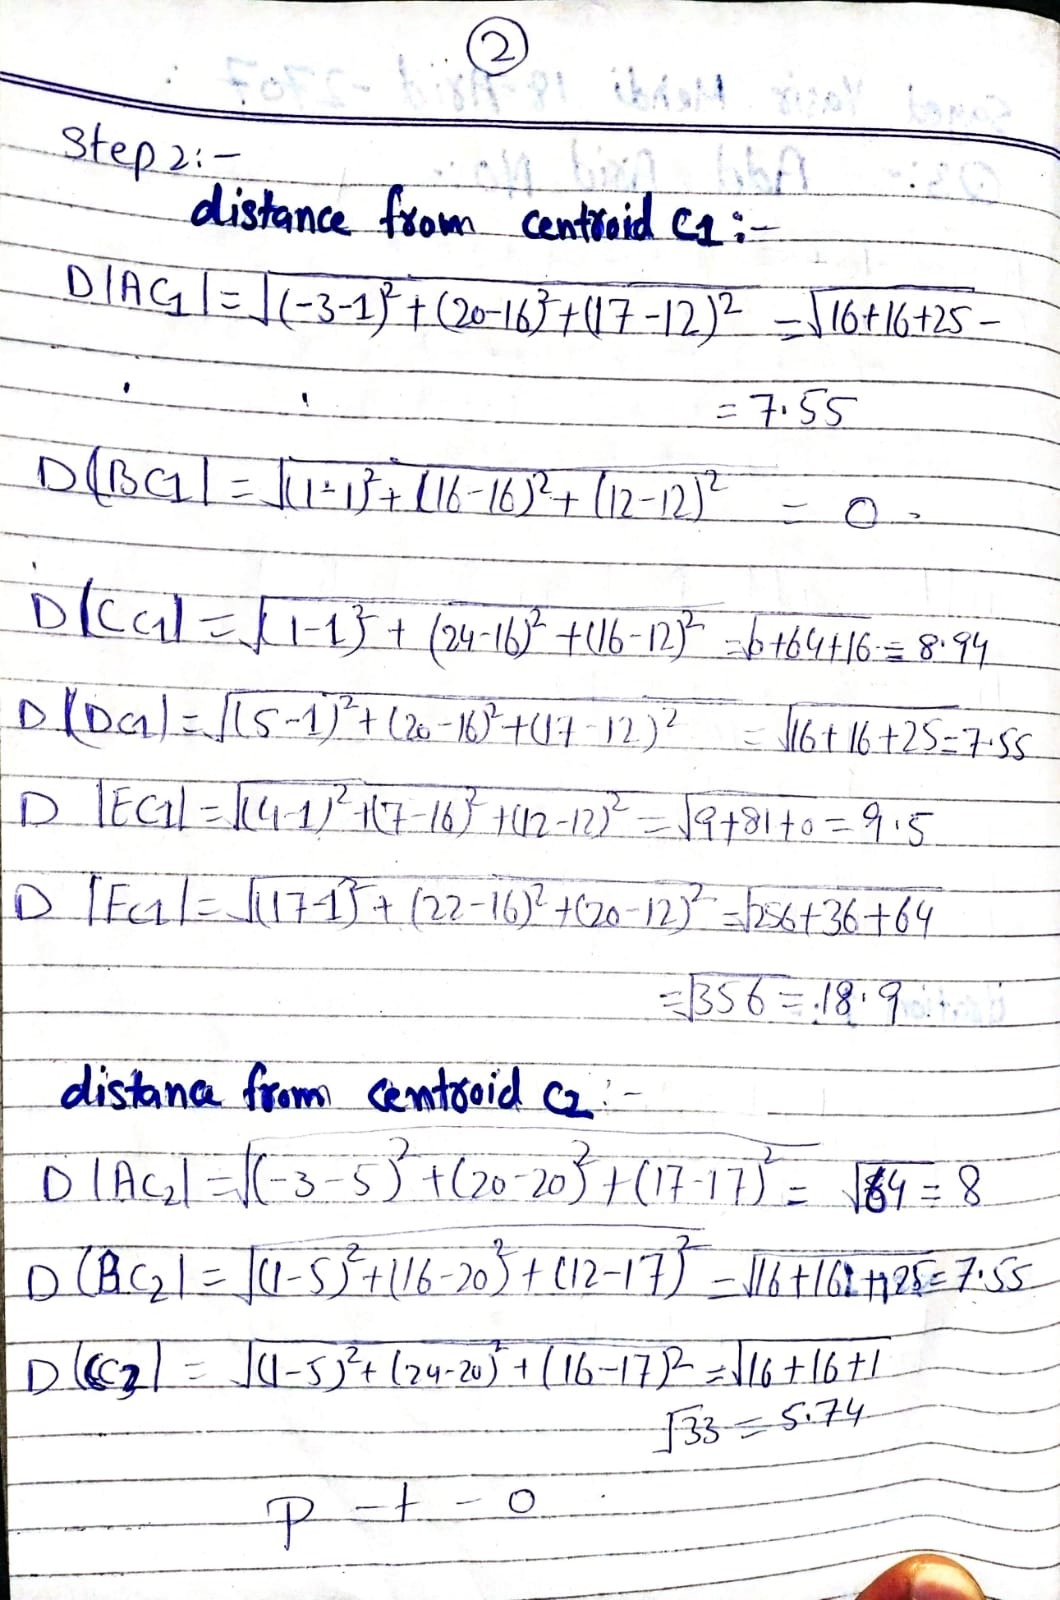 2
Step 2:-
distance from centroid C1:-
D|AC1| = √(-3-1)² + (20-16)² + (17-12)² = √16+16+25 -
= 7.55
D(BC1| = √(1-1)² + (16-16)² + (12-12)² = 0.
D|CC1| = √(1-1)² + (24-16)² + (16-12)² = √0+64+16 = 8.94
D|DC1| = √(5-1)² + (20-16)² + (17-12)² = √16+16+25 = 7.55
D |EC1| = √(4-1)² + (7-16)² + (12-12)² = √9+81+0 = 9.5
D |FC1| = √(17-1)² + (22-16)² + (20-12)² = √256+36+64
= √356 = 18.9
distance from centroid C2:-
D|AC2| = √(-3-5)² + (20-20)² + (17-17)² = √64 = 8
D(BC2| = √(1-5)² + (16-20)² + (12-17)² = √16+16+25 = 7.55
D(CC2| = √(1-5)² + (24-20)² + (16-17)² = √16+16+1
√33 = 5.74
P - t - o